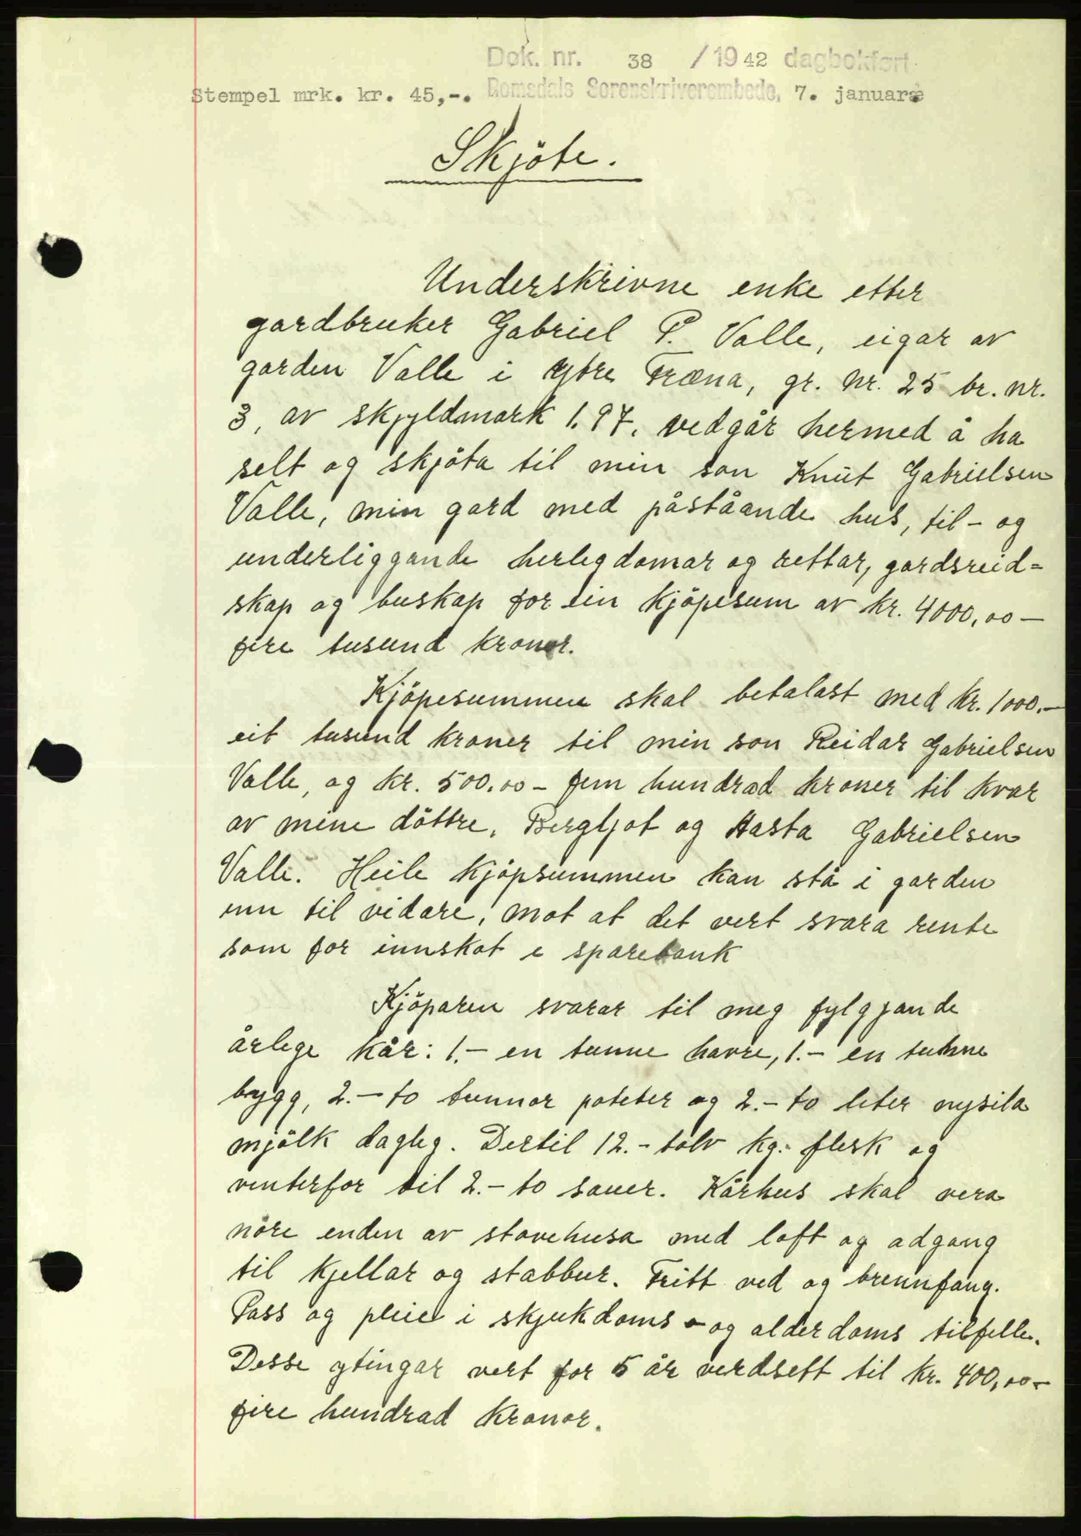 Dok. nr. 38 / 1942 dagbokført
Stempel mrk. kr. 45,-. Romsdals Sorenskriverembede, 7. januar
Skjöte.
Underskrivne enke etter
gardbruker Gabriel P. Valle, eigar av
garden Valle i Ytre Fræna, gr. nr. 25 br. nr.
3, av skjyldmark 1.97, vedgår hermed å ha
selt og skjöta til min son Knut Gabrielsen
Valle, min gard med påståande hus, til- og
underliggande herlegdomar og rettar, gardsreid=
skap og buskap for ein kjöpesum av kr. 4000,00 –
fire tusund kronor.
Kjöpesummen skal betalast med kr. 1000.–
eit tusund kroner til min son Reidar Gabrielsen
Valle, og kr. 500.00 – fem hundrad kroner til kvar
av mine döttre, Bergljot og Aasta Gabrielsen
Valle. Heile kjöpsummen kan stå i garden
inn til vidare, mot at det vert svara rente
som for innskot i sparebank
Kjöparen svarar til meg fylgjande
årlege kår: 1.– en tunne havre, 1.– en tunne
bygg, 2.– to tunnor poteter og 2.– to leter nysila
mjölk dagleg. Dertil 12.– tolv kg. flesk og
vinterfor til 2.– to sauer. Kårhus skal vera
nöre enden av stovehusa med loft og adgang
til kjellar og stabbur. Fritt ved og brennfang.
Pass og pleie i skjukdoms - og alderdoms tilfelle.
Desse ytingar vert for 5 år verdsett til kr. 400,00–
fire hundrad kronor.